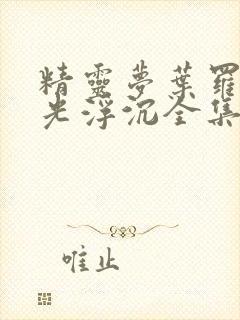 精靈夢葉羅
光浮沉全集
唯止